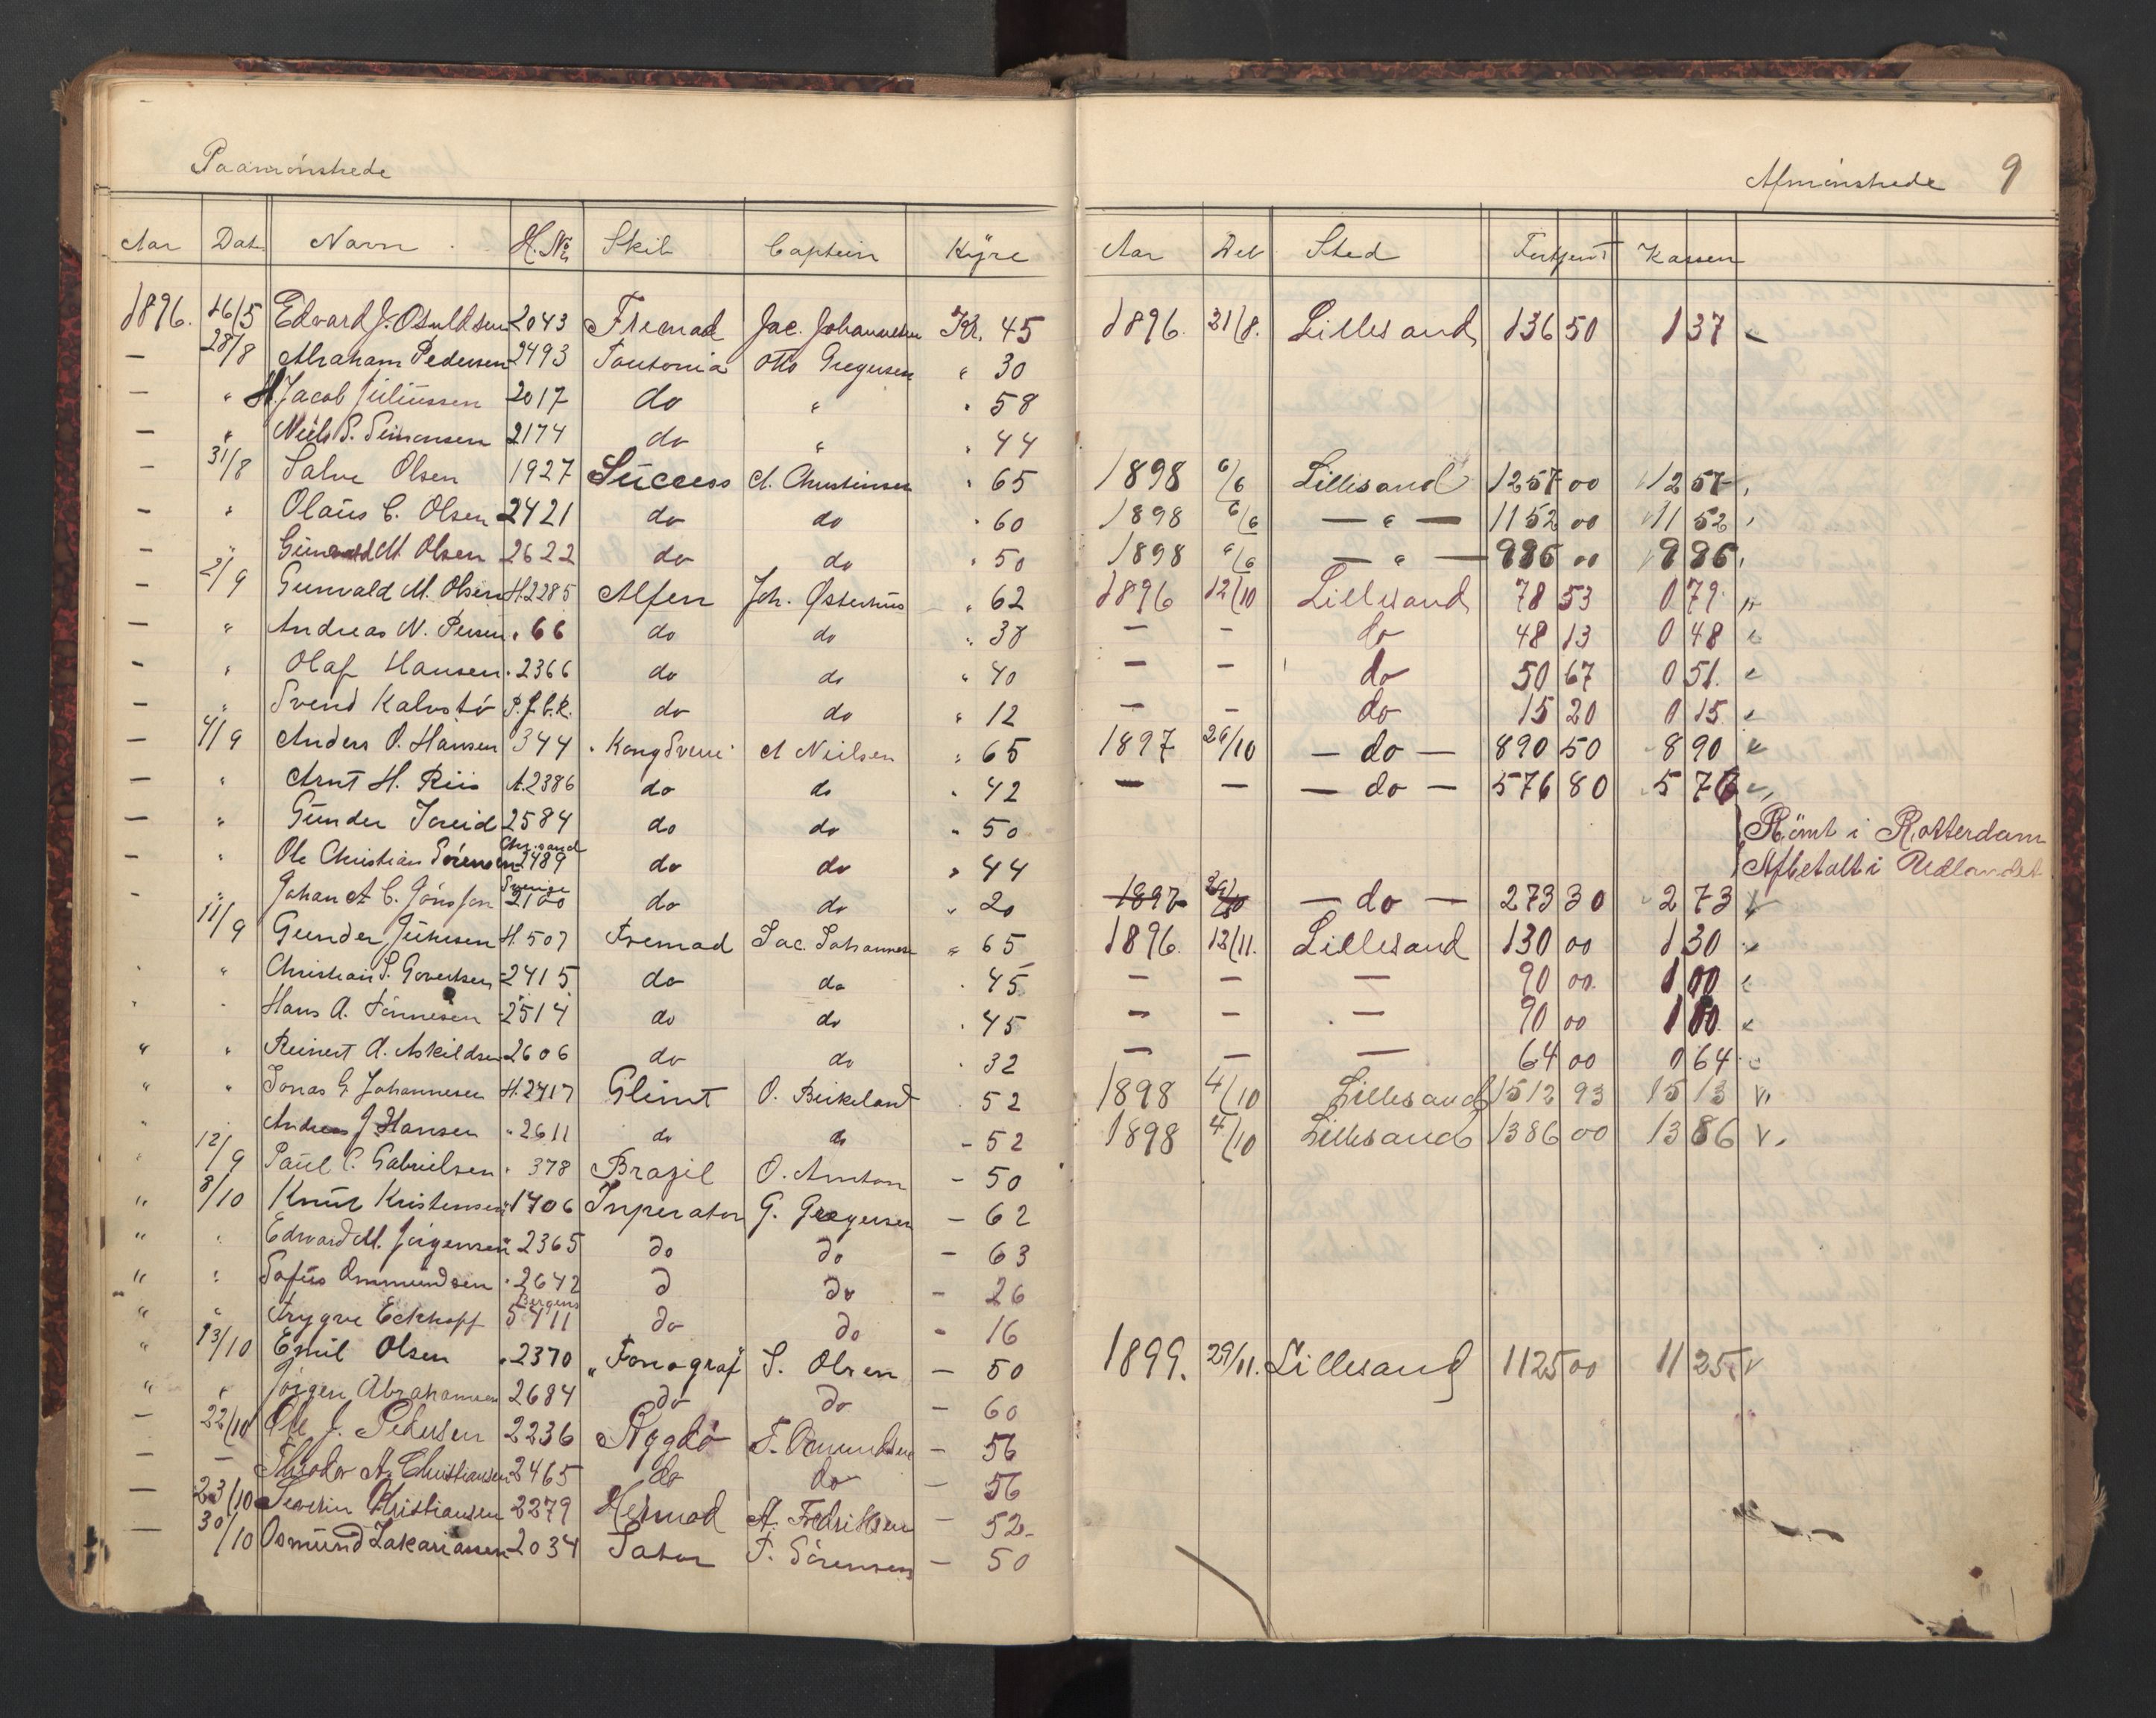 Paamönstrede
Afmönstrede 9
Aar Dat Navn H. Nr Skib Captein Hyre Aar Dat Sted Fortjent Kassen
1896. 16/5 Edvard J. Osuldsen 2043 Fremad Jac. Johannesen Kr. 45 1896. 21/8. Lillesand 136 50 137 "
— 28/8 Abraham Pedersen 2493 Toutonia Otto Gregersen " 30
— " H. Jacob Juliussen 2017 do " " 58
— " Niels S. Simonsen 2174 do " " 44
— 31/8 Salve Olsen 1927 Success A. Christensen " 65 1898 6/6 Lillesand 1257 00 1257 "
— " Olaus C. Olsen 2421 do do " 60 1898 6/6 — " — 1152 00 1152 "
— " Gunvald M Olsen 2622 do do " 50 1898 6/6 — " — 986 00 986 "
— 2/9 Gunvald M. Olsen H. 2285 Alfen Joh. Østerhus " 62 1896 12/10 Lillesand 78 53 079 "
— " Andreas N. Persen " 66 do do " 38 — — do 48 13 048 "
— " Olaf Hansen " 2366 do do " 40 — — do 50 67 051. "
— " Svend Kalvstö P.f.b.R. do do " 12 — — do 15 20 015 "
— 4/9 Anders O. Hansen 344 "Kong Sverre" A Nielsen " 65 1897 26/10 — do — 890 50 890 "
— " Arnt H. Riis A. 2386 do do " 42 — — — do — 576 80 576 "
— " Gunder Joreid 2584 do do " 50 Römt i Rotterdam
— " Ole Christian Sörensen Chr.sand 2489 do do " 44 Afbetalt i Udlandet
— " Johan A C. Jönsson Sverige 2100 do do " 20 1897 26/10 — do — 273 30 273 v
11/9 Gunder Juhlsen H. 507 Fremad Jac. Johannesen " 65 1896. 12/11. Lillesand 130 00 130 "
" " Christian S. Govertsen 2415 do do " 45 — — — 90 00. 100 "
" " Hans A. Tönnesen 2514 do do " 45 — — — 90 00 100. "
" " Reinert A. Askildsen 2606 do do " 32 — — — 64 00 064 "
" " Jonas G Johannesen H. 2417 Glimt O. Birkeland " 52 1898 4/10 Lillesand 1512 93 1513 v,
" " Andreas J Hansen " 2611 do do - 52 1898 4/10 Lillesand 1386 00 1386 v.
" 12/9 Paul C. Gabrielsen " 378 Brazil O. Amton - 50
" 8/10 Knut Kristensen " 1706 Inperator G. Gregersen - 62
" " Edvard M. Jörgensen " 2365 do do - 63
" " Sofus Ommundsen " 2642 d do - 26
" " Trygve Eckhoff Bergens 5411 do do - 16
" 13/10 Emil Olsen " 2370 "Fonograf S. Olsen - 50 1899. 29/11. Lillesand 1125 00 1125. v
" " Jörgen Abrahamsen 2684 do do - 60
— 22/10 Ole J. Pedersen 2236 Rygdö T. Omundsen - 56
— — Theodor A. Christiansen 2465 do do - 56
— 23/10 Severin Kristiansen 2279 Hermod A. Fredriksen - 52-
— 30/10 Osmund Zakariassen 2034 Sator F. Sörensen - 50